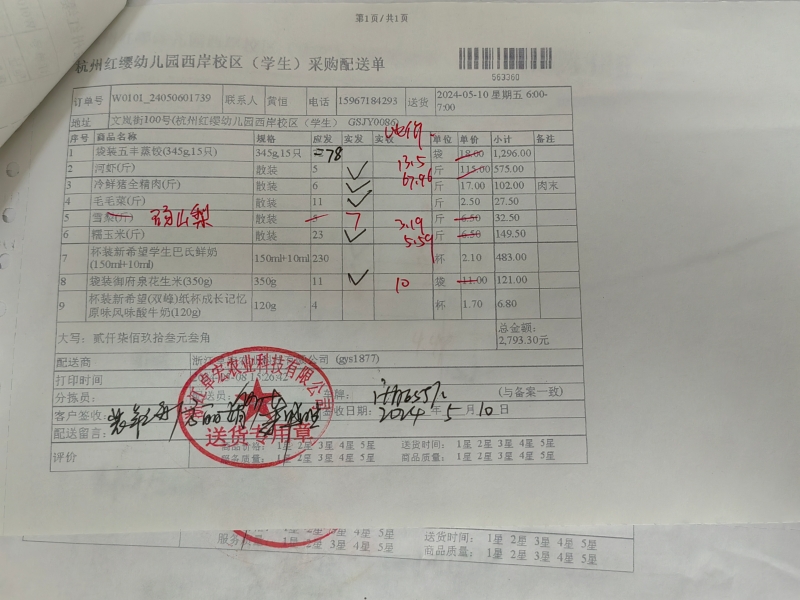 第1页/共1页
杭州红缨幼儿园西岸校区（学生）采购配送单
563360
订单号 W0101_24050601739 联系人 黄恒 电话 15967184293 送货 2024-05-10 星期五 6:00-7:00
地址 文岚街100号(杭州红缨幼儿园西岸校区（学生） GSJY0086)
序号 商品名称 规格 应发 实发 实收 单位 单价 小计 备注
1 袋装五丰蒸饺(345g,15只) 345g,15只 =78 袋 18.00 1,296.00
13.5
2 河虾(斤) 散装 5 ✓ 斤 115.00 575.00
67.96
3 冷鲜猪全精肉(斤) 散装 6 ✓ 斤 17.00 102.00 肉末
4 毛毛菜(斤) 散装 11 ✓ 斤 2.50 27.50
5 雪梨(斤) 砀山梨 散装 5 7 3.19 斤 6.50 32.50
6 糯玉米(斤) 散装 23 ✓ 5.59 斤 6.50 149.50
7 杯装新希望学生巴氏鲜奶(150ml+10ml) 150ml+10ml 230 杯 2.10 483.00
8 袋装御府泉花生米(350g) 350g 11 ✓ 10 袋 11.00 121.00
9 杯装新希望(双峰)纸杯成长记忆原味风味酸牛奶(120g) 120g 4 杯 1.70 6.80
大写：贰仟柒佰玖拾叁元叁角 总金额：2,793.30元
配送商 (gys1877)
打印时间 13:26:42
分拣员： (与备案一致)
客户签收： 签收日期： 2024年5月10日
配送留言：
农业科技有限公司
送货专用章
评价 商品价格： 1星 2星 3星 4星 5星 送货时间： 1星 2星 3星 4星 5星
服务质量： 1星 2星 3星 4星 5星 商品质量： 1星 2星 3星 4星 5星
1星 2星 3星 4星 5星 送货时间： 1星 2星 3星 4星 5星
服务质量： 1星 2星 3星 4星 5星 商品质量： 1星 2星 3星 4星 5星